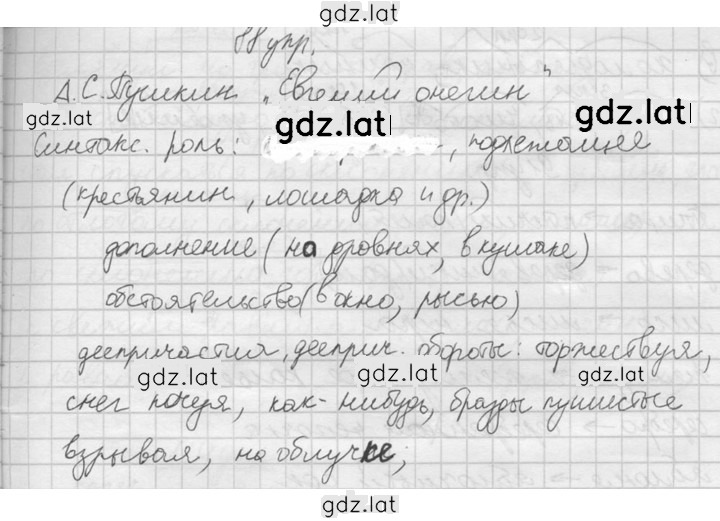 gdz.lat
88 упр.
А.С.Пушкин "Евгений онегин"
gdz.lat gdz.lat
Синтакс. роль: , подлежащее
(крестьянин, лошадка и др.)
дополнение (на дровнях, в кушаке)
обстоятельство (в окно, рысью)
деепричастия, дееприч. обороты: торжествуя,
gdz.lat gdz.lat
снег почуя, как-нибудь, бразды пушистые
взрывая, на облучке,
gdz.lat